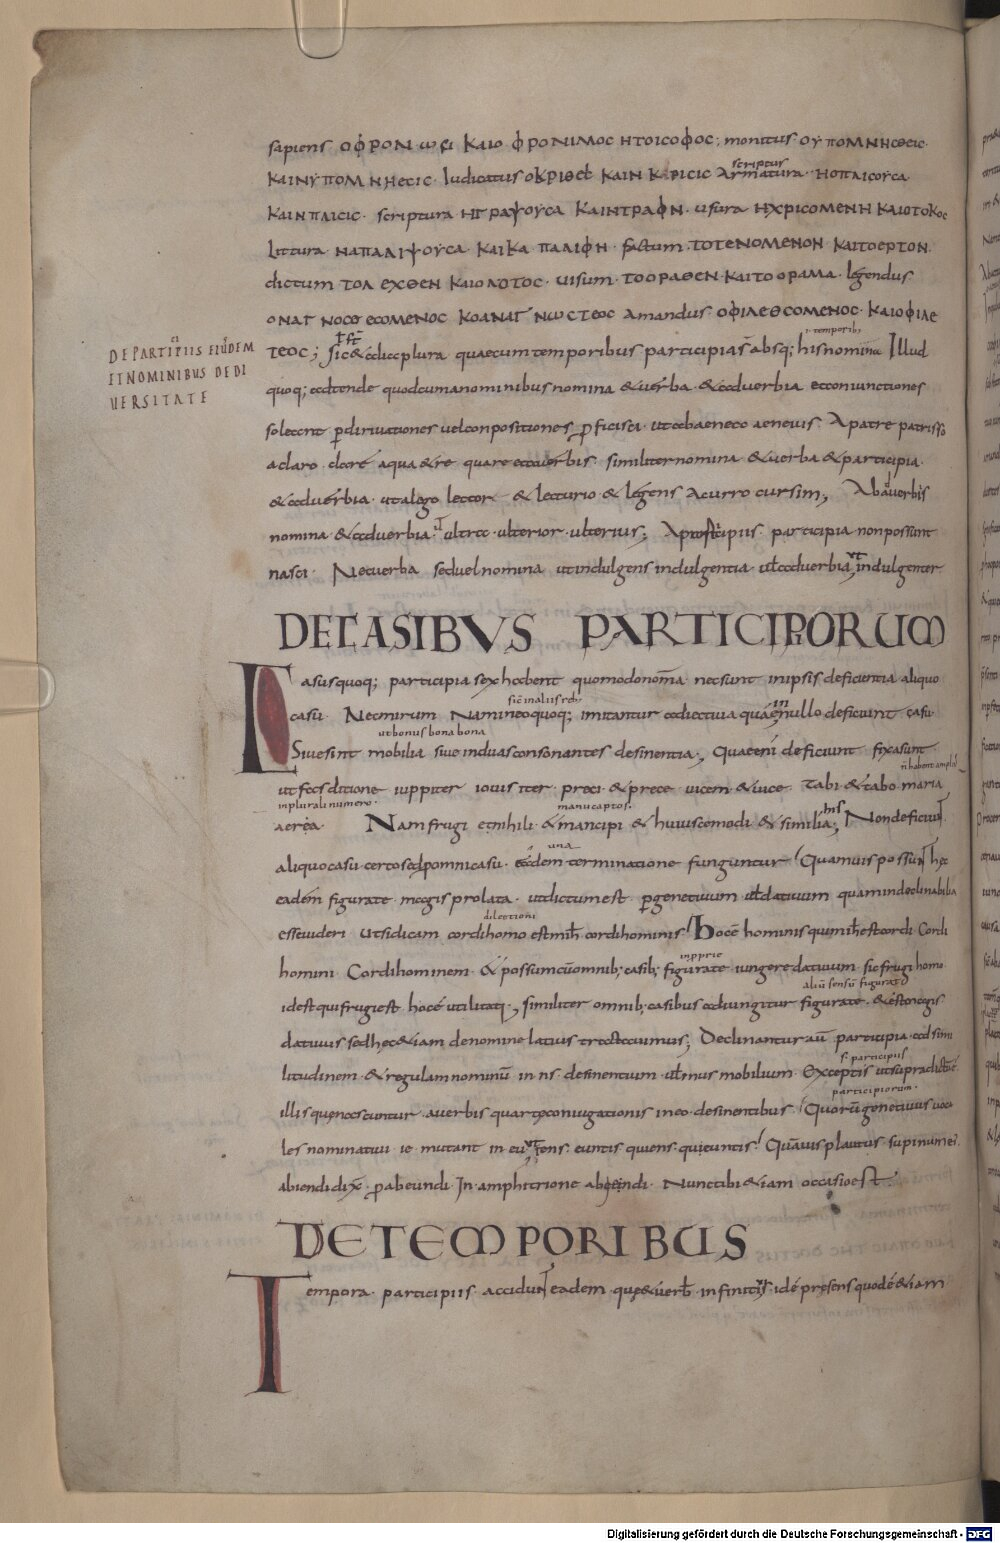 sapiens ΟΦΡΟΝωΕΙ ΚΑΙΟ ΦΡΟΝΙΜΟC ΗΤΟΙCΟΦΟC; monitus· ΟΥΠΟΜΝΗCΘΕΙC·
ΚΑΙΝΥΠΟΜΝΗCΙC· Iudicatus ΟΚΡΙΘΕC ΚΑΙΝ ΚΡΙCΙC
scriptus
Armatura· ΗΟΠΛΙCΟΥCΑ·
ΚΑΙΝΠΛΙCΙC· scriptura ΗΓΡΑΨΟΥCΑ ΚΑΙΝΤΡΑΦΝ· usura ΗΧΡΙCΟΜΕΝΗ ΚΑΙΟΤΟΚΟC
Littura· ΝΑΠΑΛΙΨΟΥCΑ· ΚΑΙΚΑ ΠΑΛΙΦΗ· factum· ΤΟΤΕΝΟΜΕΝΟΝ· ΚΑΙΤΟΕΡΤΟΝ·
dictum· ΤΟΛΕΧΘΕΝ ΚΑΙΟΛΟΤΟC· uisum· ΤΟΟΡΑΘΕΝ·ΚΑΙΤΟΟΡΑΜΑ· legendus
ΟΝΑΓΝΟCΘΕCΟΜΕΝΟC ΚΟΑΝΑΓΝωCΤΕΟC Amandus· ΟΦΙΛΕΘCΟΜΕΝΟC· ΚΑΙΟΦΙΛΕ
ΤΕΟC; sic & alia plura quaecumtemporibus participia s absq; his nomina
i· temporib;
Illud
DE PARTICIPIIS EIUSDEM
ET NOMINIBUS DE DI
UERSITATE
quoq; adtende quodcumanominibus nomina & uerba· & aduerbia etconiunctiones
solent p dirivationes uelconpositiones pficisci· ut abaeneo aeneus· A patre patrisso
a claro clare aqua & re quare etabuerbis similiter nomina & uerba & participia·
& aduerbia· utalego lector & lecturio & legens Acurro cursim; Abaduerbiis
nomina & aduerbia· ut ultra· ulterior· ulterius; Aparticipiis participia nonpossunt
nasci· Necuerba seduelnomina utindulgens indulgentia· uel aduerbia ut indulgenter
DE CASIBVS PARTICIPIORUM
Casus quoq; participia sex habent quomodo nomina necsunt inipsis deficientia aliquo
sicinaliis reb;
casu· Necmirum Namineoquoq; imitantur adiectiua quae in nullo deficiunt casu·
utbonus bona bona
Siuesint mobilia siue induasconsonantes desinentia; Quaeenim deficiunt fixasunt
ñ habent ampli
ut fas ditione iuppiter iouis iter· preci· & prece uicem & uice· Tabi & tabo· maria
inplurali numero·
manucaptos·
aerea· Namfrugi etnihili· & mancipi & huiuscemodi & similia; Nondeficiunt
una
aliquocasu certo sedpomnicasu· eadem terminatione funguntur Quamuis possunt hec
eadem figurate· magis prolata· utdictumest pgenetiuum uel datiuum quamindeclinabilia
dilectioni
esseuideri Utsidicam cordi homo est mihi cordihominis hocē hominis quimihi est cordi Cordi
inpprie
homini· Cordihominem· & possumcū omnib; casib; figurate iungere datiuum· sic frugi homo·
aliū sensū figurate
idest quifrugiest hocē utilitati; similiter omnib; casibus adiungitur figurate· & est magis
datiuus sed hec & iam denomine latius tractauimus; Declinanturaū participia· adsimi
s· participiis
litudinem· & regulam nominū in ns· desinentium· uel inus mobilium· Exceptis utsupradictūē
participiorum·
illis quenascuntur· auerbis quarte coniugationis ineo·desinentibus· Quorū genetiuus uoca
les nominatiui ie· mutant in eu ut iens· euntis quiens· queuntis Quāuis plautus supinumē
abiendi dix̄· p abeundi· In amphitrione abiendi· Nunc tibi & iam occasioest·
DE TEMPORIBUS
Tempora· participiis· accidunt eadem· que & uerb̄ infinitis· idē presens quodē & iam
Digitalisierung gefördert durch die Deutsche Forschungsgemeinschaft - DFG